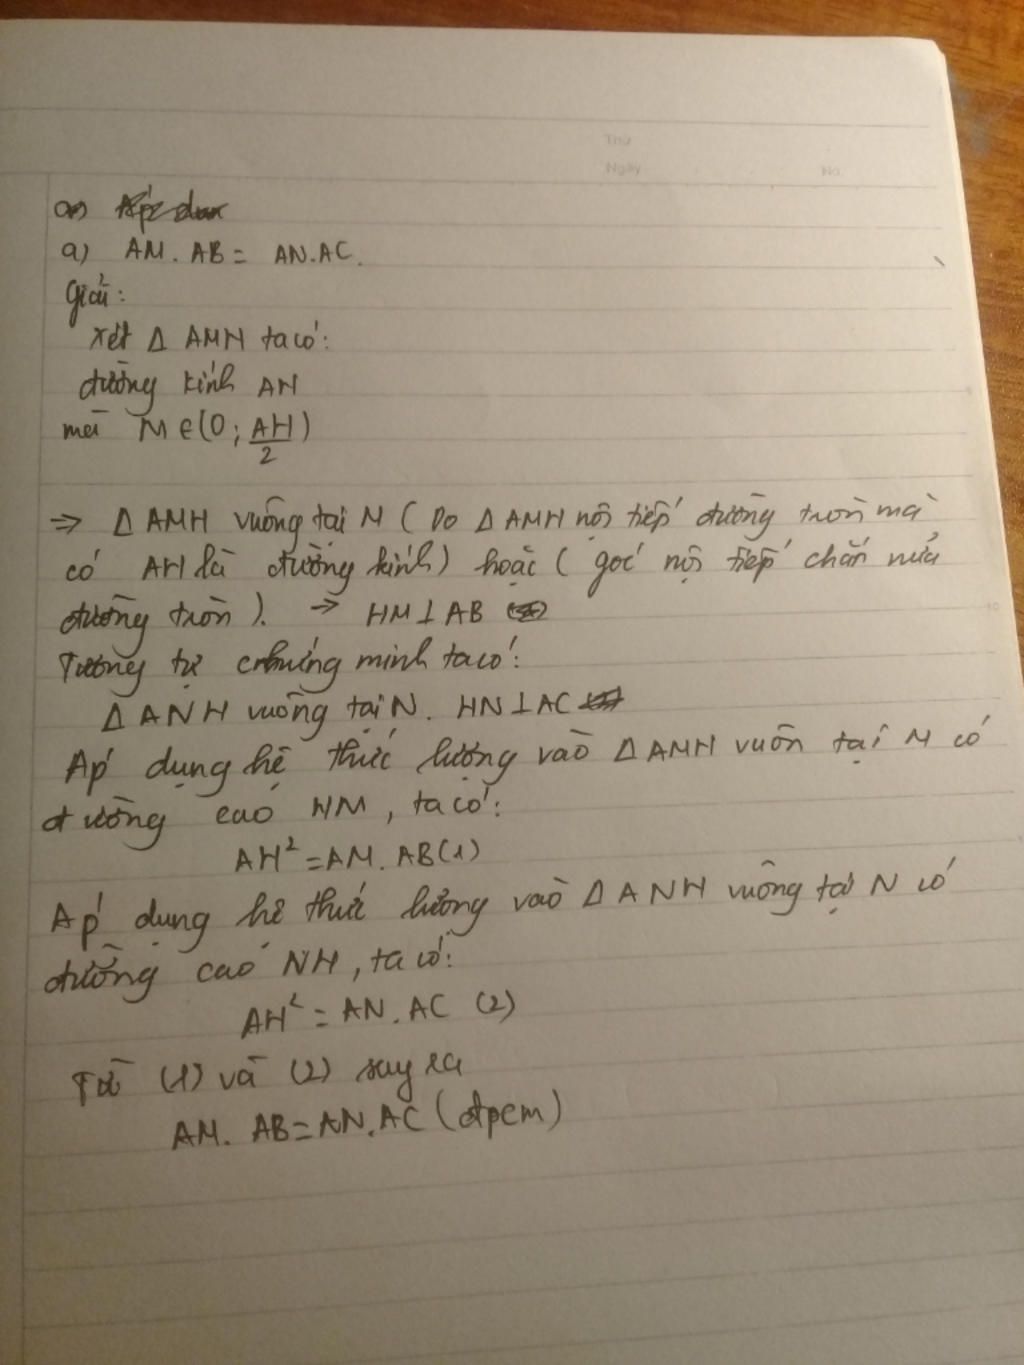 Thứ
Ngày No.
a) Áp dụn
a) AM. AB = AN.AC.
Giải:
Xét Δ AMH ta có:
đường kính AH
mà M ∈ (O; AH/2)
=> Δ AMH vuông tại M ( Do Δ AMH nội tiếp đường tròn mà
có AH là đường kính) hoặc ( góc nội tiếp chắn nửa
đường tròn ). => HM ⊥ AB
Tương tự chứng minh ta có:
Δ ANH vuông tại N. HN ⊥ AC
Áp dụng hệ thức lượng vào Δ AMH vuôn tại M có
đường cao HM, ta có:
AH² = AM. AB (1)
Áp dụng hệ thức lượng vào Δ ANH vuông tại N có
đường cao NH, ta có:
AH² = AN. AC (2)
Từ (1) và (2) suy ra
AM. AB = AN.AC (đpcm)